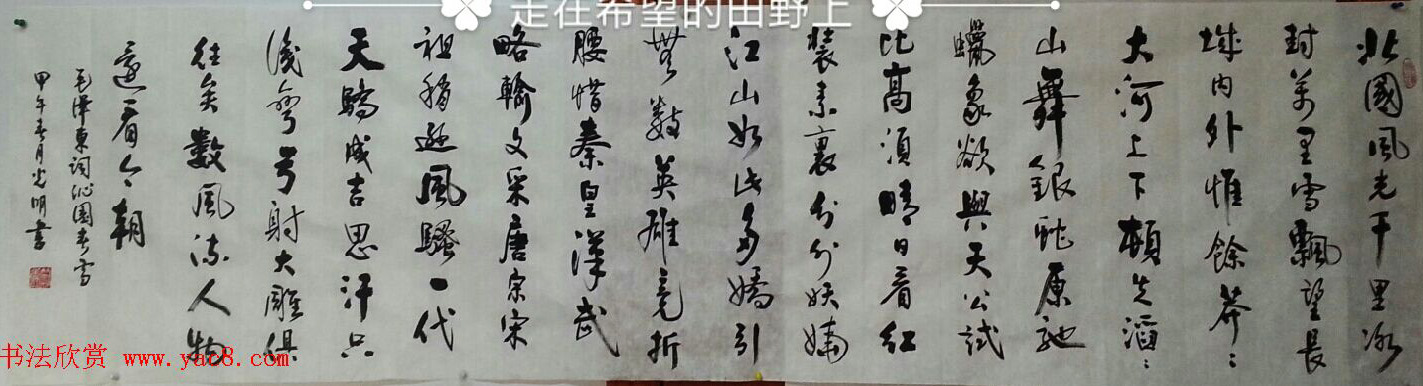 走在希望的田野上
北國風光千里冰
封萬里雪飄望長
城内外惟餘莽〻
大河上下頓失滔〻
山舞銀蛇原馳
蠟象欲與天公試
比高須晴日看紅
裝素裹分外妖嬈
江山如此多嬌引
無數英雄竞折
腰惜秦皇漢武
略輸文采唐宗宋
祖稍遜風騷一代
天驕成吉思汗只
識彎弓射大雕俱
往矣數風流人物
還看今朝
毛澤東詞沁園春雪
甲午春月光明書
书法欣赏 www.yac8.com